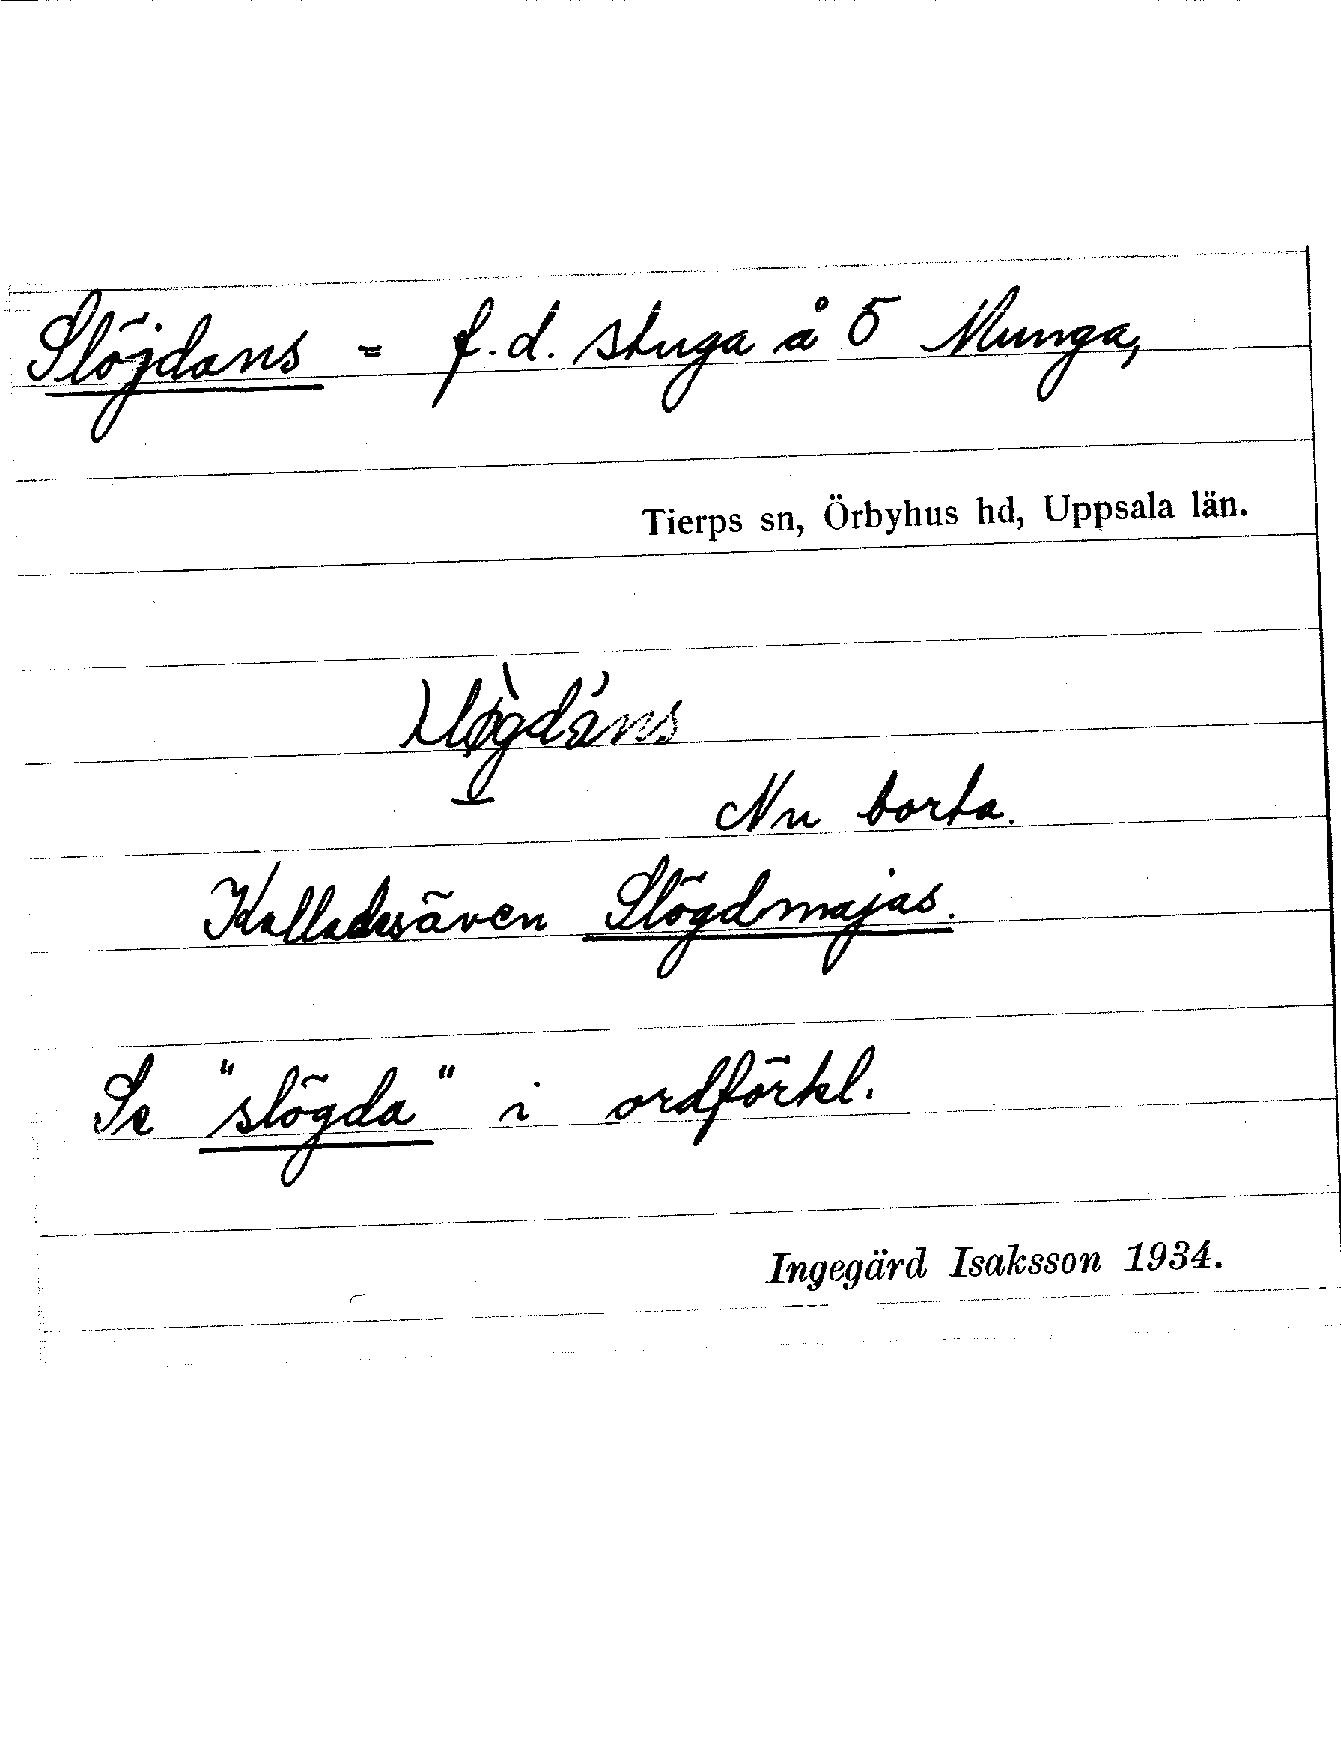 Slöjdans = f.d. stuga å 5 Munga,
Tierps sn, Örbyhus hd, Uppsala län.
Nu borta.
Kallades även Slögdmajas.
Se "slögda" i ordförkl.
Ingegärd Isaksson 1934.